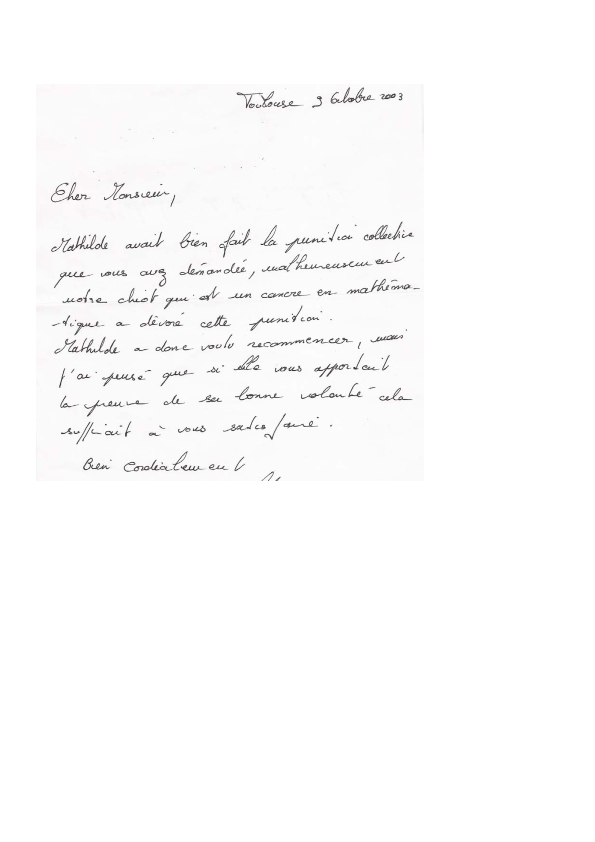 Toulouse 9 Octobre 2003
Cher Monsieur,
Mathilde avait bien fait la punition collective
que vous avez démandée, malheureusement
notre chiot qui est un cancre en mathéma-
-tique a dévoré cette punition.
Mathilde a donc voulu recommencer, mais
j'ai pensé que si elle vous apportait
la preuve de sa bonne volonté cela
suffirait à vous satisfaire.
Bien cordialement